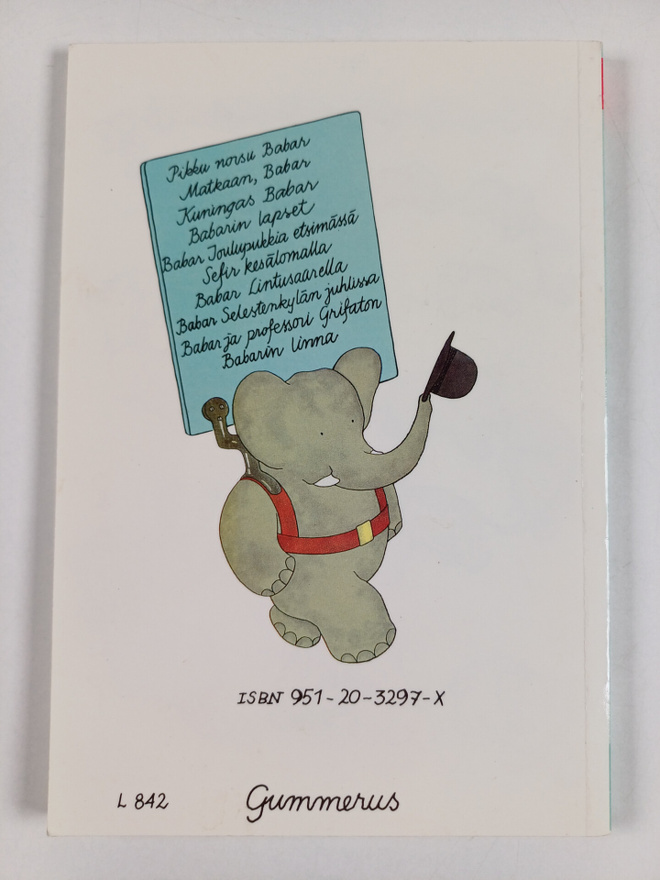 Pikku norsu Babar
Matkaan, Babar
Kuningas Babar
Babarin lapset
Babar Joulupukkia etsimässä
Sefir kesälomalla
Babar Lintusaarella
Babar Selestenkylän juhlissa
Babar ja professori Grifaton
Babarin linna
ISBN 951-20-3297-X
L 842
Gummerus